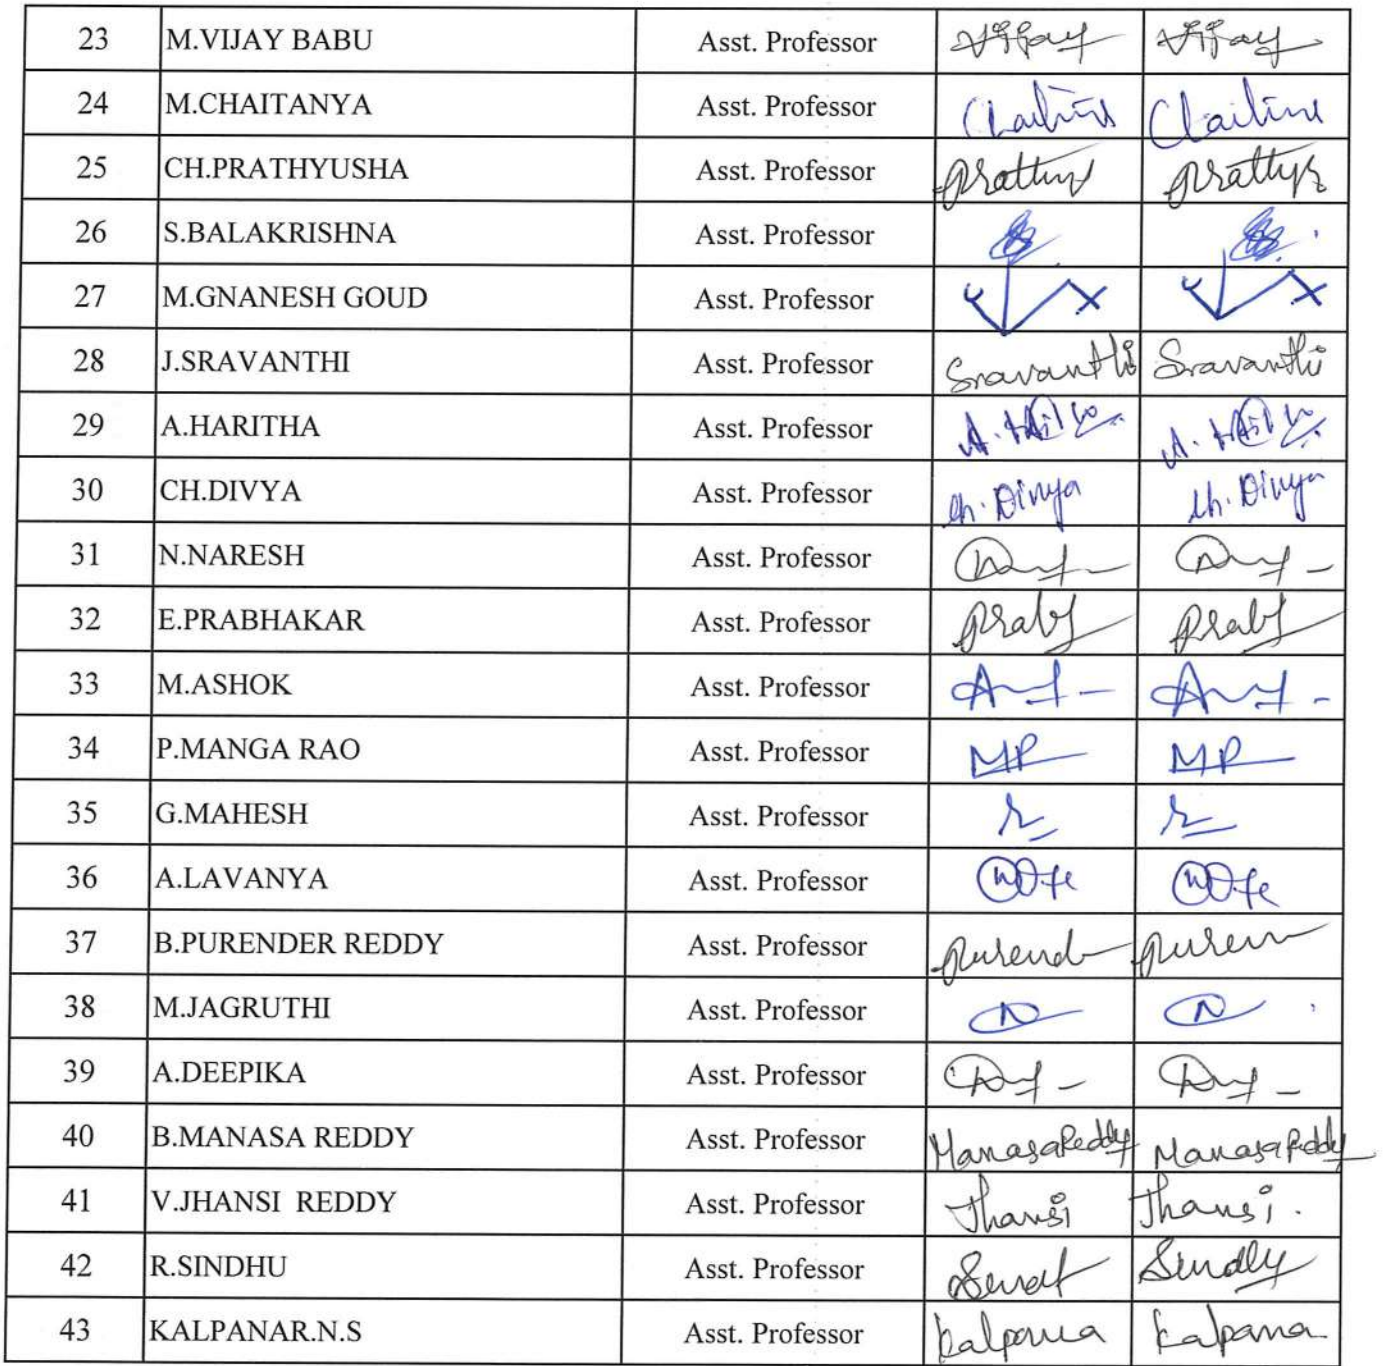 23 M.VIJAY BABU Asst. Professor Vijay Vijay
24 M.CHAITANYA Asst. Professor
25 CH.PRATHYUSHA Asst. Professor
26 S.BALAKRISHNA Asst. Professor
27 M.GNANESH GOUD Asst. Professor
28 J.SRAVANTHI Asst. Professor Sravanthi Sravanthi
29 A.HARITHA Asst. Professor
30 CH.DIVYA Asst. Professor Ch. Divya Ch. Divya
31 N.NARESH Asst. Professor
32 E.PRABHAKAR Asst. Professor
33 M.ASHOK Asst. Professor
34 P.MANGA RAO Asst. Professor MP MP
35 G.MAHESH Asst. Professor
36 A.LAVANYA Asst. Professor
37 B.PURENDER REDDY Asst. Professor
38 M.JAGRUTHI Asst. Professor
39 A.DEEPIKA Asst. Professor
40 B.MANASA REDDY Asst. Professor ManasaReddy ManasaReddy
41 V.JHANSI REDDY Asst. Professor Jhansi Jhansi.
42 R.SINDHU Asst. Professor
43 KALPANAR.N.S Asst. Professor kalpana kalpana